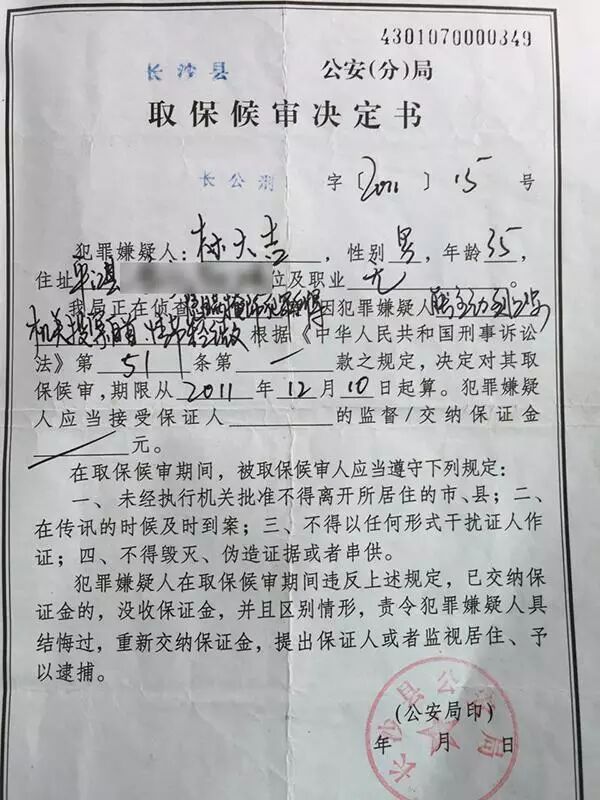 4301070000349
长沙县 公安(分)局
取保候审决定书
长公刑 字〔2011〕15号
犯罪嫌疑人:林大吉,性别男,年龄35,
住址平江县 位及职业无。
我局正在侦查 因犯罪嫌疑人能主动到公安
机关投案自首,情节 根据《中华人民共和国刑事诉讼
法》第51条第一款之规定,决定对其取
保候审,期限从2011年12月10日起算。犯罪嫌疑
人应当接受保证人 的监督/交纳保证金
元。
在取保候审期间,被取保候审人应当遵守下列规定:
一、未经执行机关批准不得离开所居住的市、县;二、
在传讯的时候及时到案;三、不得以任何形式干扰证人作
证;四、不得毁灭、伪造证据或者串供。
犯罪嫌疑人在取保候审期间违反上述规定,已交纳保
证金的,没收保证金,并且区别情形,责令犯罪嫌疑人具
结悔过,重新交纳保证金,提出保证人或者监视居住、予
以逮捕。
(公安局印)
年 月 日
长沙县公安局